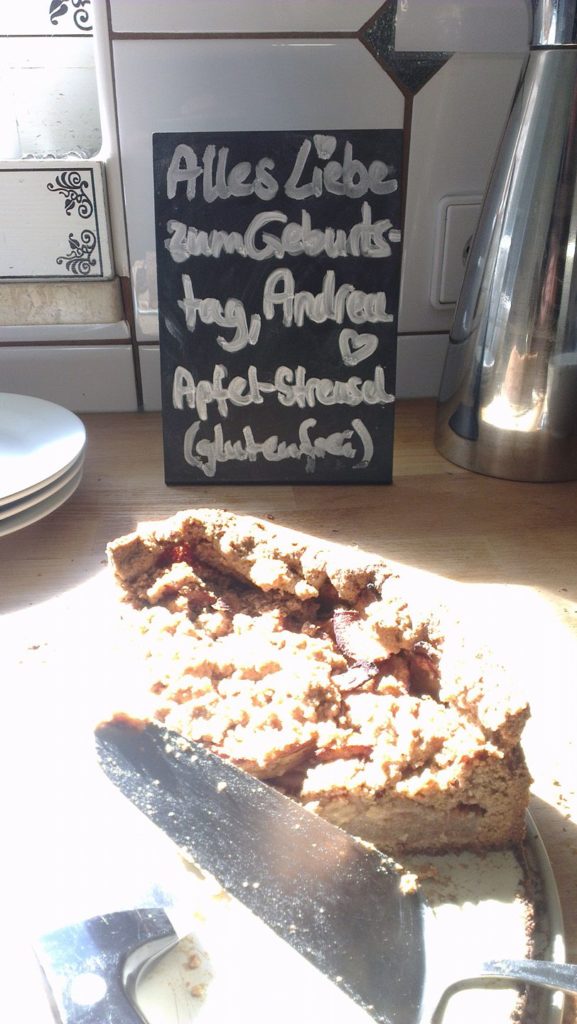 Alles Liebe
zum Geburts-
tag, Andrea
♡
Apfel-Streusel
(glutenfrei)